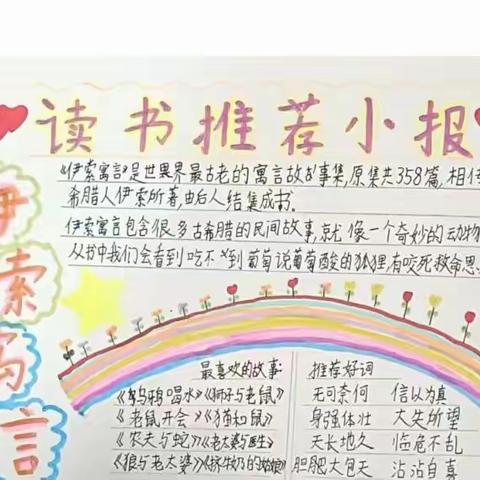 读书推荐小报
伊索寓言
《伊索寓言》是世界界最古老的寓言故故事集,原集共358篇,相传
希腊人伊索所著,由后人结集成书。
伊索寓言包含很多古希腊的民间故事,就像一个奇妙的动物
从书中我们会看到吃不到葡萄说葡萄酸的狐狸,有咬死救命恩
最喜欢的故事:
《乌鸦喝水》《狮子与老鼠》
《老鼠开会》《猫和鼠》
《农夫与蛇》《老太婆与医生》
《狼与老太婆》《挤牛奶的姑娘》
推荐好词
无可奈何 信以为真
身强体壮 大失所望
天长地久 临危不乱
胆肥大包天 沾沾自喜